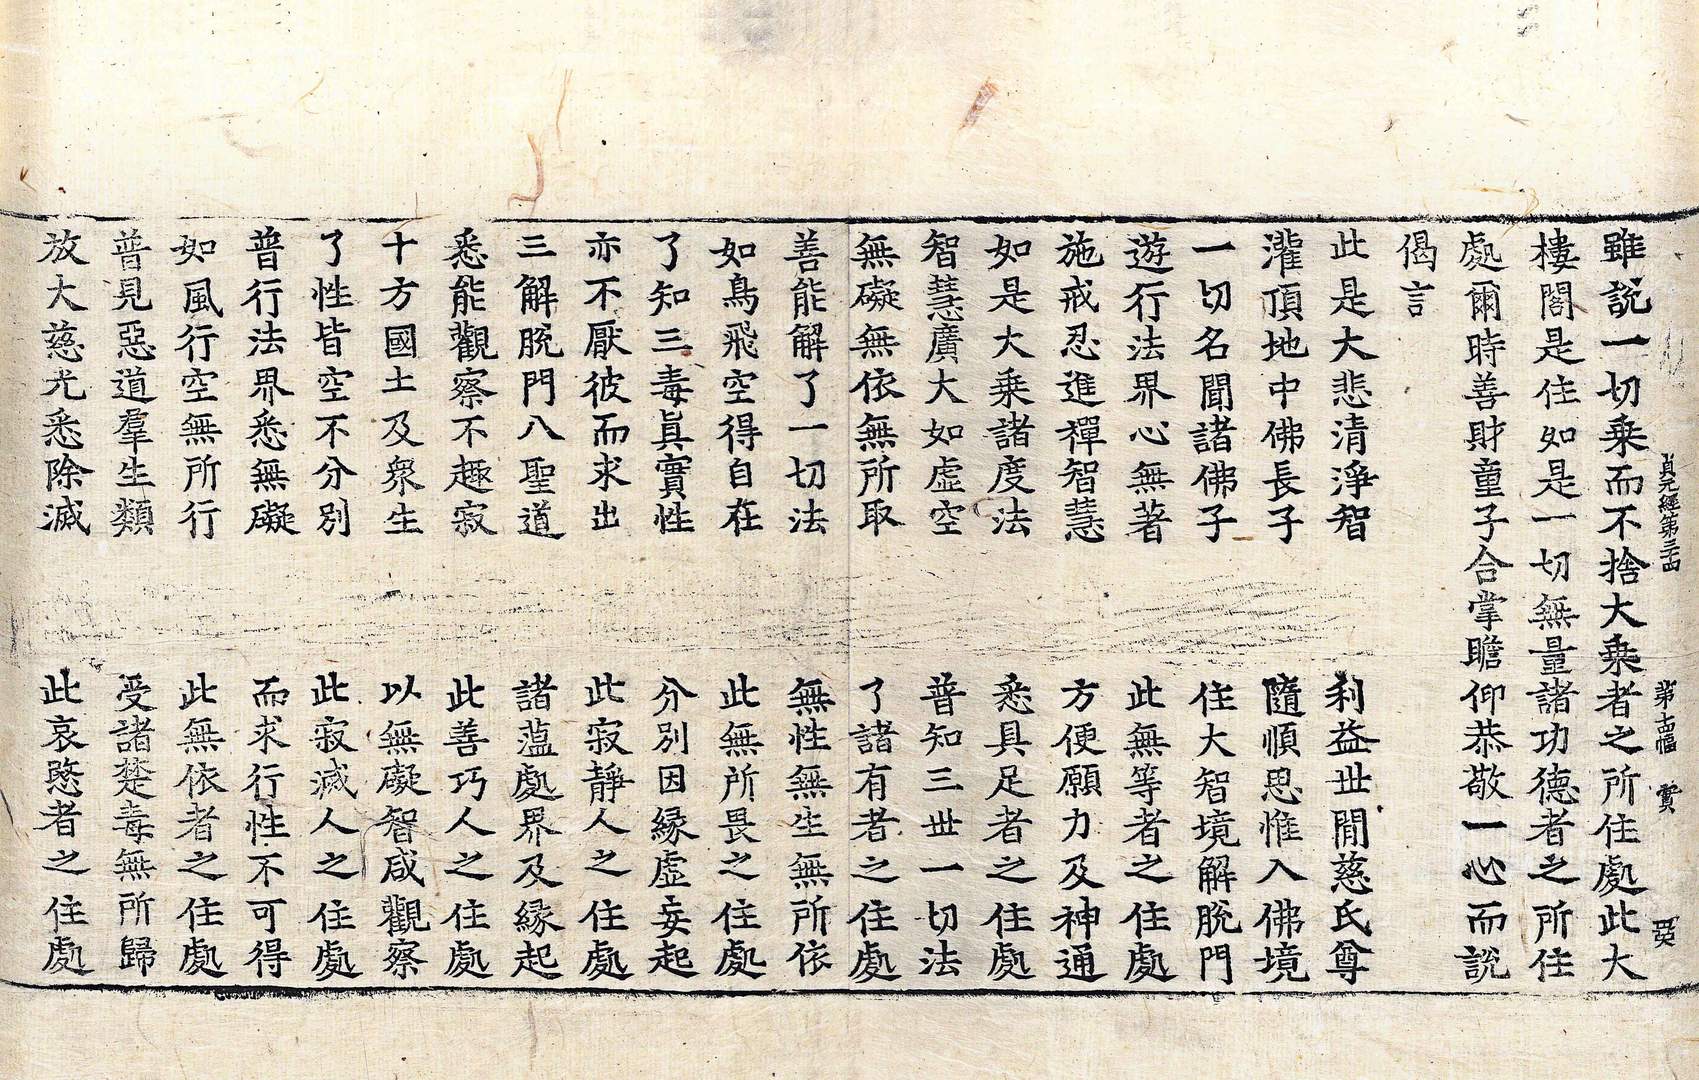 貞元經第三十四 第 幅
雖說一切乘而不捨大乘者之所住處此大
樓閣是住如是一切無量諸功德者之所住
處爾時善財童子合掌瞻仰恭敬一心而說
偈言
此是大悲清淨智 利益世間慈氏尊
灌頂地中佛長子 隨順思惟入佛境
一切名聞諸佛子 住大智境解脫門
遊行法界心無著 此無等者之住處
施戒忍進禪智慧 方便願力及神通
如是大乘諸度法 悉具足者之住處
智慧廣大如虛空 普知三世一切法
無礙無依無所取 了諸有者之住處
善能解了一切法 無性無生無所依
如鳥飛空得自在 此無所畏之住處
了知三毒真實性 分別因緣虛妄起
亦不厭彼而求出 此寂靜人之住處
三解脫門八聖道 諸蘊處界及緣起
悉能觀察不趣寂 此善巧人之住處
十方國土及眾生 以無礙智咸觀察
了性皆空不分別 此寂滅人之住處
普行法界悉無礙 而求行性不可得
如風行空無所行 此無依者之住處
普見惡道羣生類 受諸楚毒無所歸
放大慈光悉除滅 此哀愍者之住處